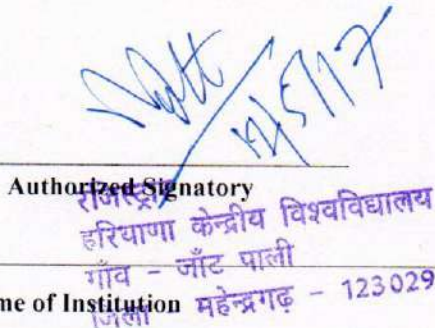 12/5/17
Authorized Signatory
हरियाणा केन्द्रीय विश्वविद्यालय
गाँव - जाँट पाली
जिला - महेन्द्रगढ़ - 123029
me of Institution